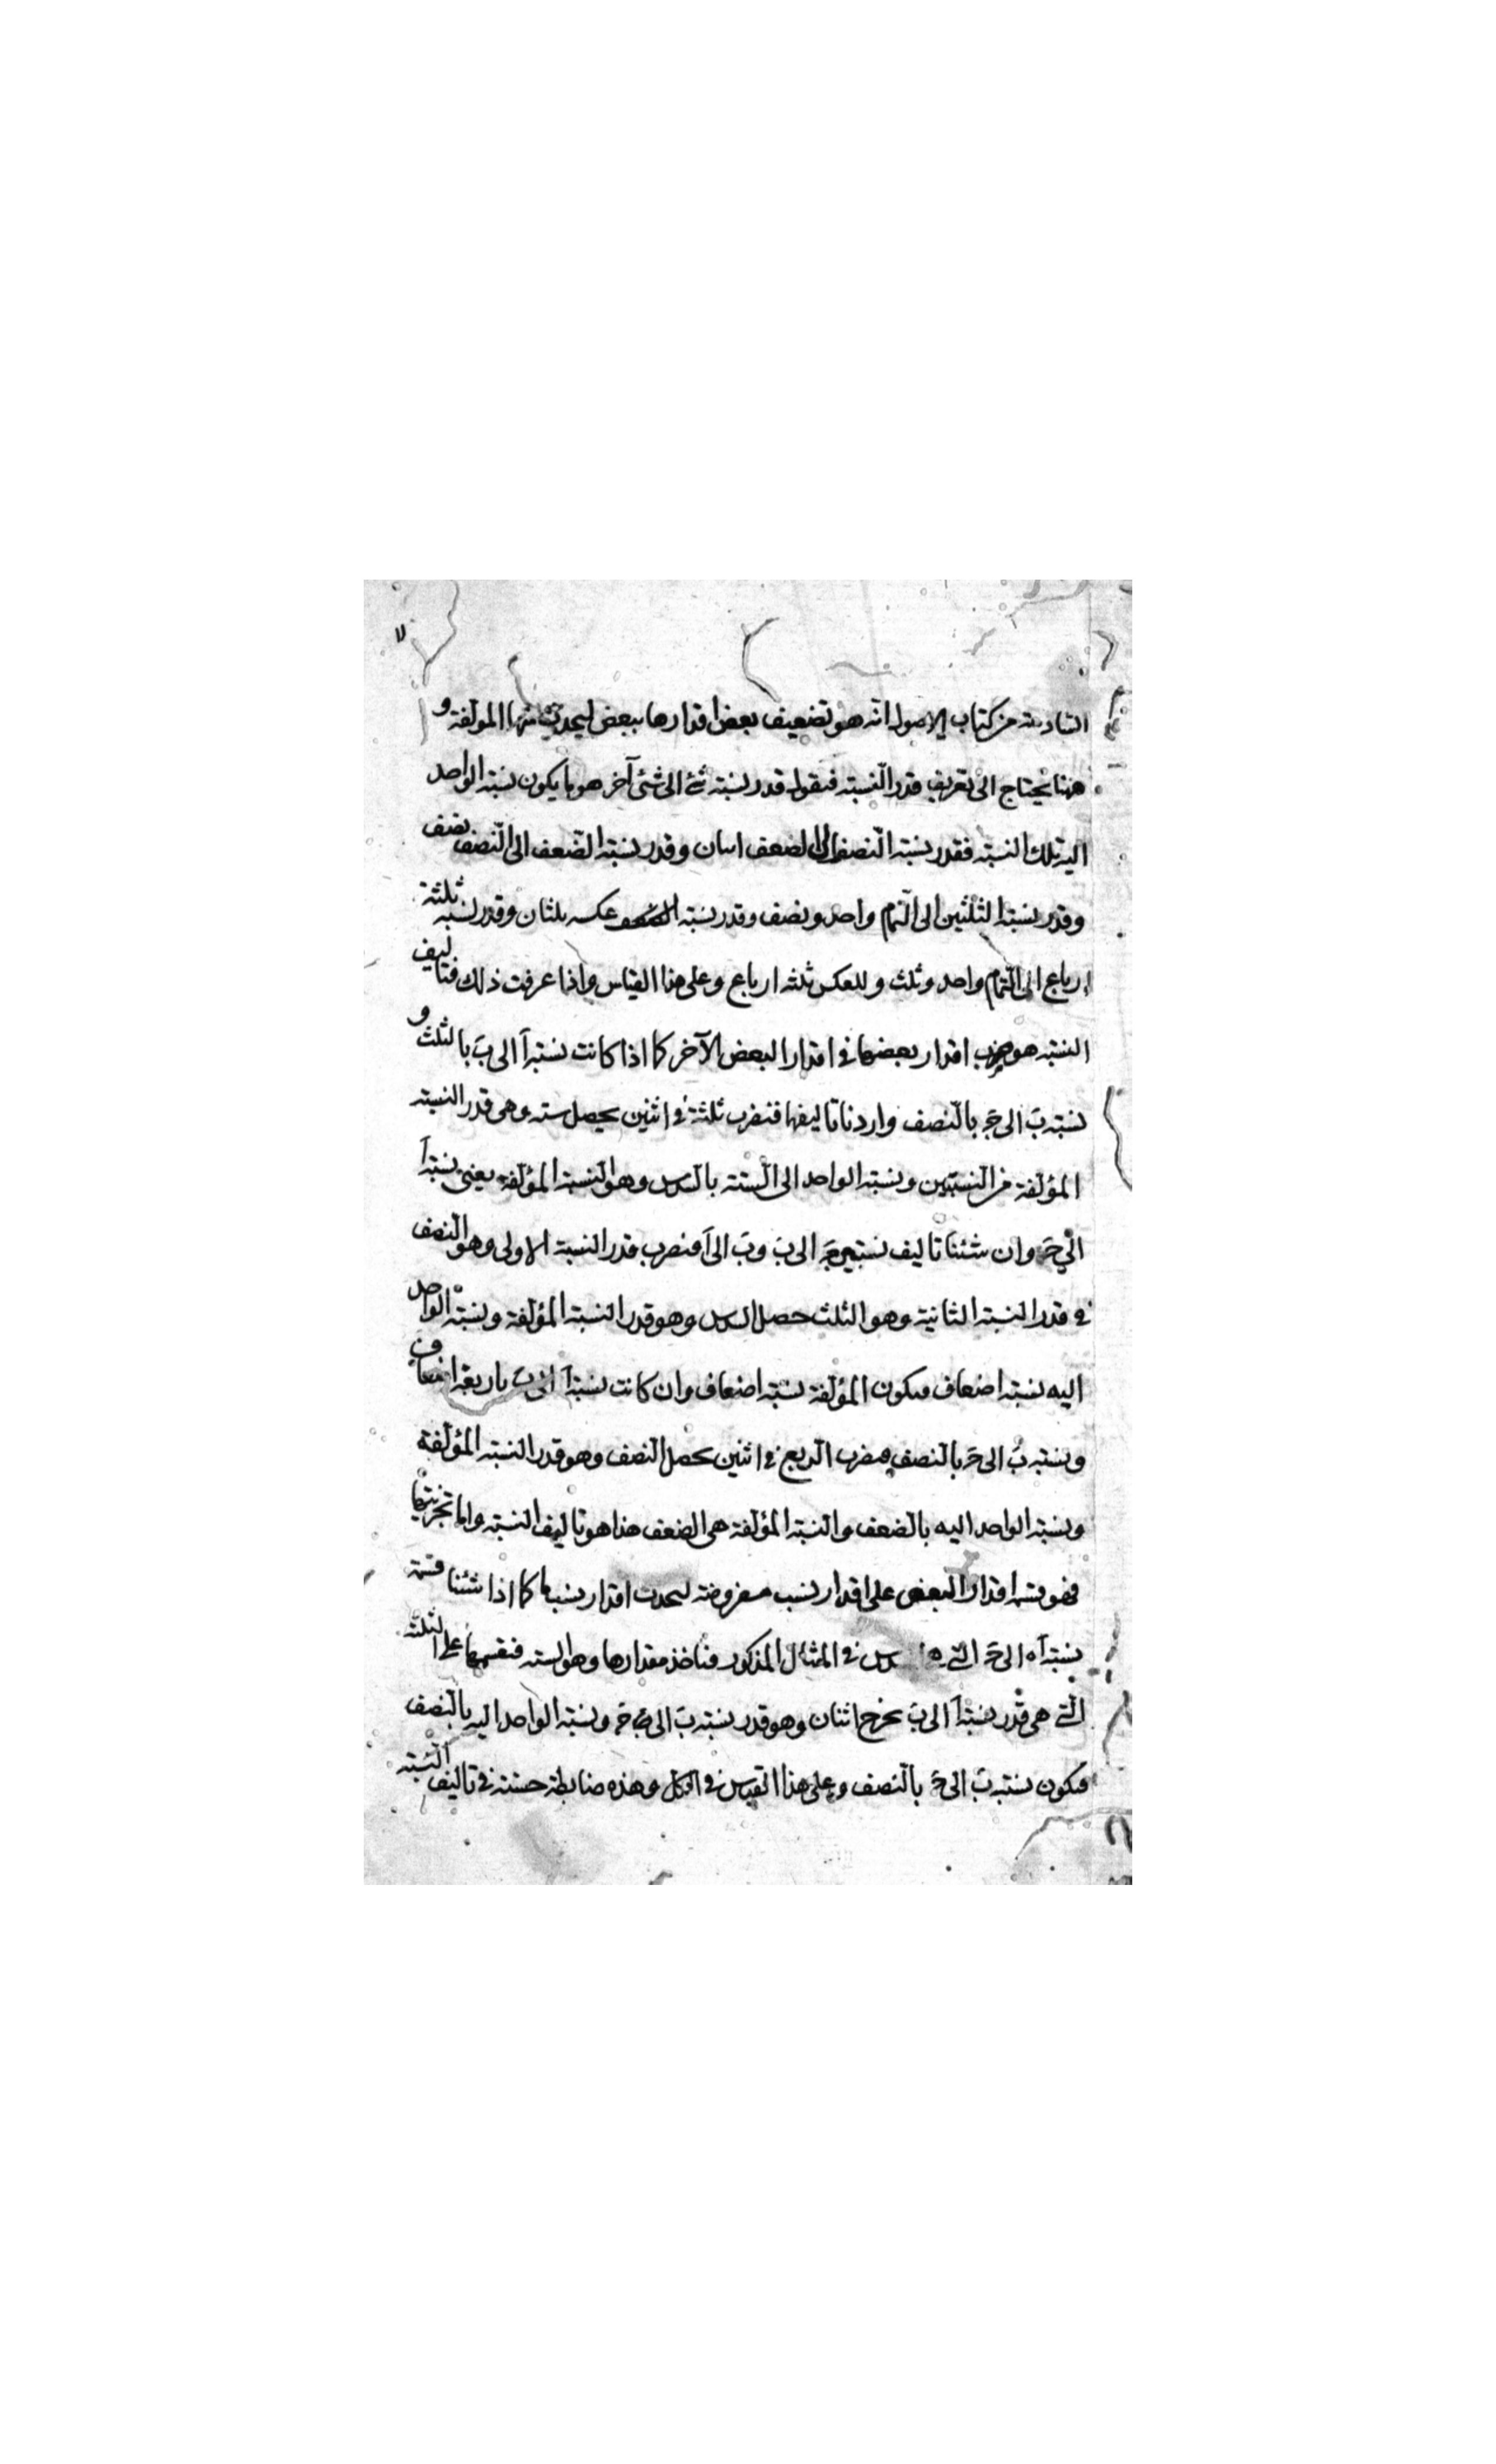 السادسة من كتاب الاصول انّه هو تضعيف بعض اقدارها ببعض ليحدث منها المولّفة و
ههنا يحتاج الى تعريف قدر النّسبة فنقول قدر نسبة شئ الى شئ آخر هو ما يكون نسبة الواحد
اليه تلك النسبة فقدر نسبة النّصف الى الضعف اسان وقدر نسبة الضّعف الى النّصف نصف
وقدر نسبة الثلثين الى التّمام واحد ونصف وقدر نسبة عكسه ثلثان وقدر نسبة ثلثة
ارباع الى التّمام واحد وثلث وللعكس ثلثه ارباع وعلى هذا القياس واذا عرفت ذلك فتاليف
النسبة هو ضرب اقدار بعضها فى اقدار البعض الآخر كما اذا كانت نسبة آ الى بَ بالثلث و
نسبة بَ الى جَ بالنّصف واردنا تاليفها فنضرب ثلثة فى اثنين يحصل سته وهى قدر النسبة
المؤلّفة من النّسبتين ونسبة الواحد الى الستّة بالسدس وهو النّسبة المؤلّفة يعنى نسبة آ
الى جَ وان شئنا تاليف نسبتى جَ الى بَ وبَ الى آ فنضرب قدر النسبة الاولى وهو النّصف
فى قدر النسبة الثانية وهو الثلث حصل السدس وهو قدر النسبة المؤلّفة ونسبة الواحد
اليه نسبة اضعاف فيكون المؤلّفة نسبة اضعاف وان كانت نسبة آ الى بَ باربعة اضعاف
ونسبة بَ الى جَ بالنّصف فنضرب الرّبع فى اثنين يحصل النّصف وهو قدر النّسبة المؤلّفة
ونسبة الواحد اليه بالضّعف والنّسبة المؤلّفة هى الضعف هذا هو تاليف النسبة واما تجزيتها
فهو قسمة اقدار البعض على اقدار نسب مفروضة ليحدث اقدار نسبها كما اذا شئنا قسمة
نسبة آ الى جَ الّتى هى السدس فى المثال المذكور فناخذ مقدارها وهو الستة فنقسمها على الثلثة
الّتى هى قدر نسبة آ الى بَ يخرج اثنان وهو قدر نسبة بَ الى جَ ونسبة الواحد اليه بالنّصف
فيكون نسبة بَ الى جَ بالنّصف وعلى هذا القياس فى الكل وهذه ضابطة حسنة فى تاليف النّسبة